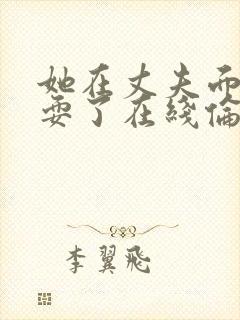 她在丈夫而
耍了在线倫
李翼飛